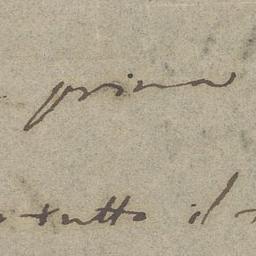 prima
tutto il